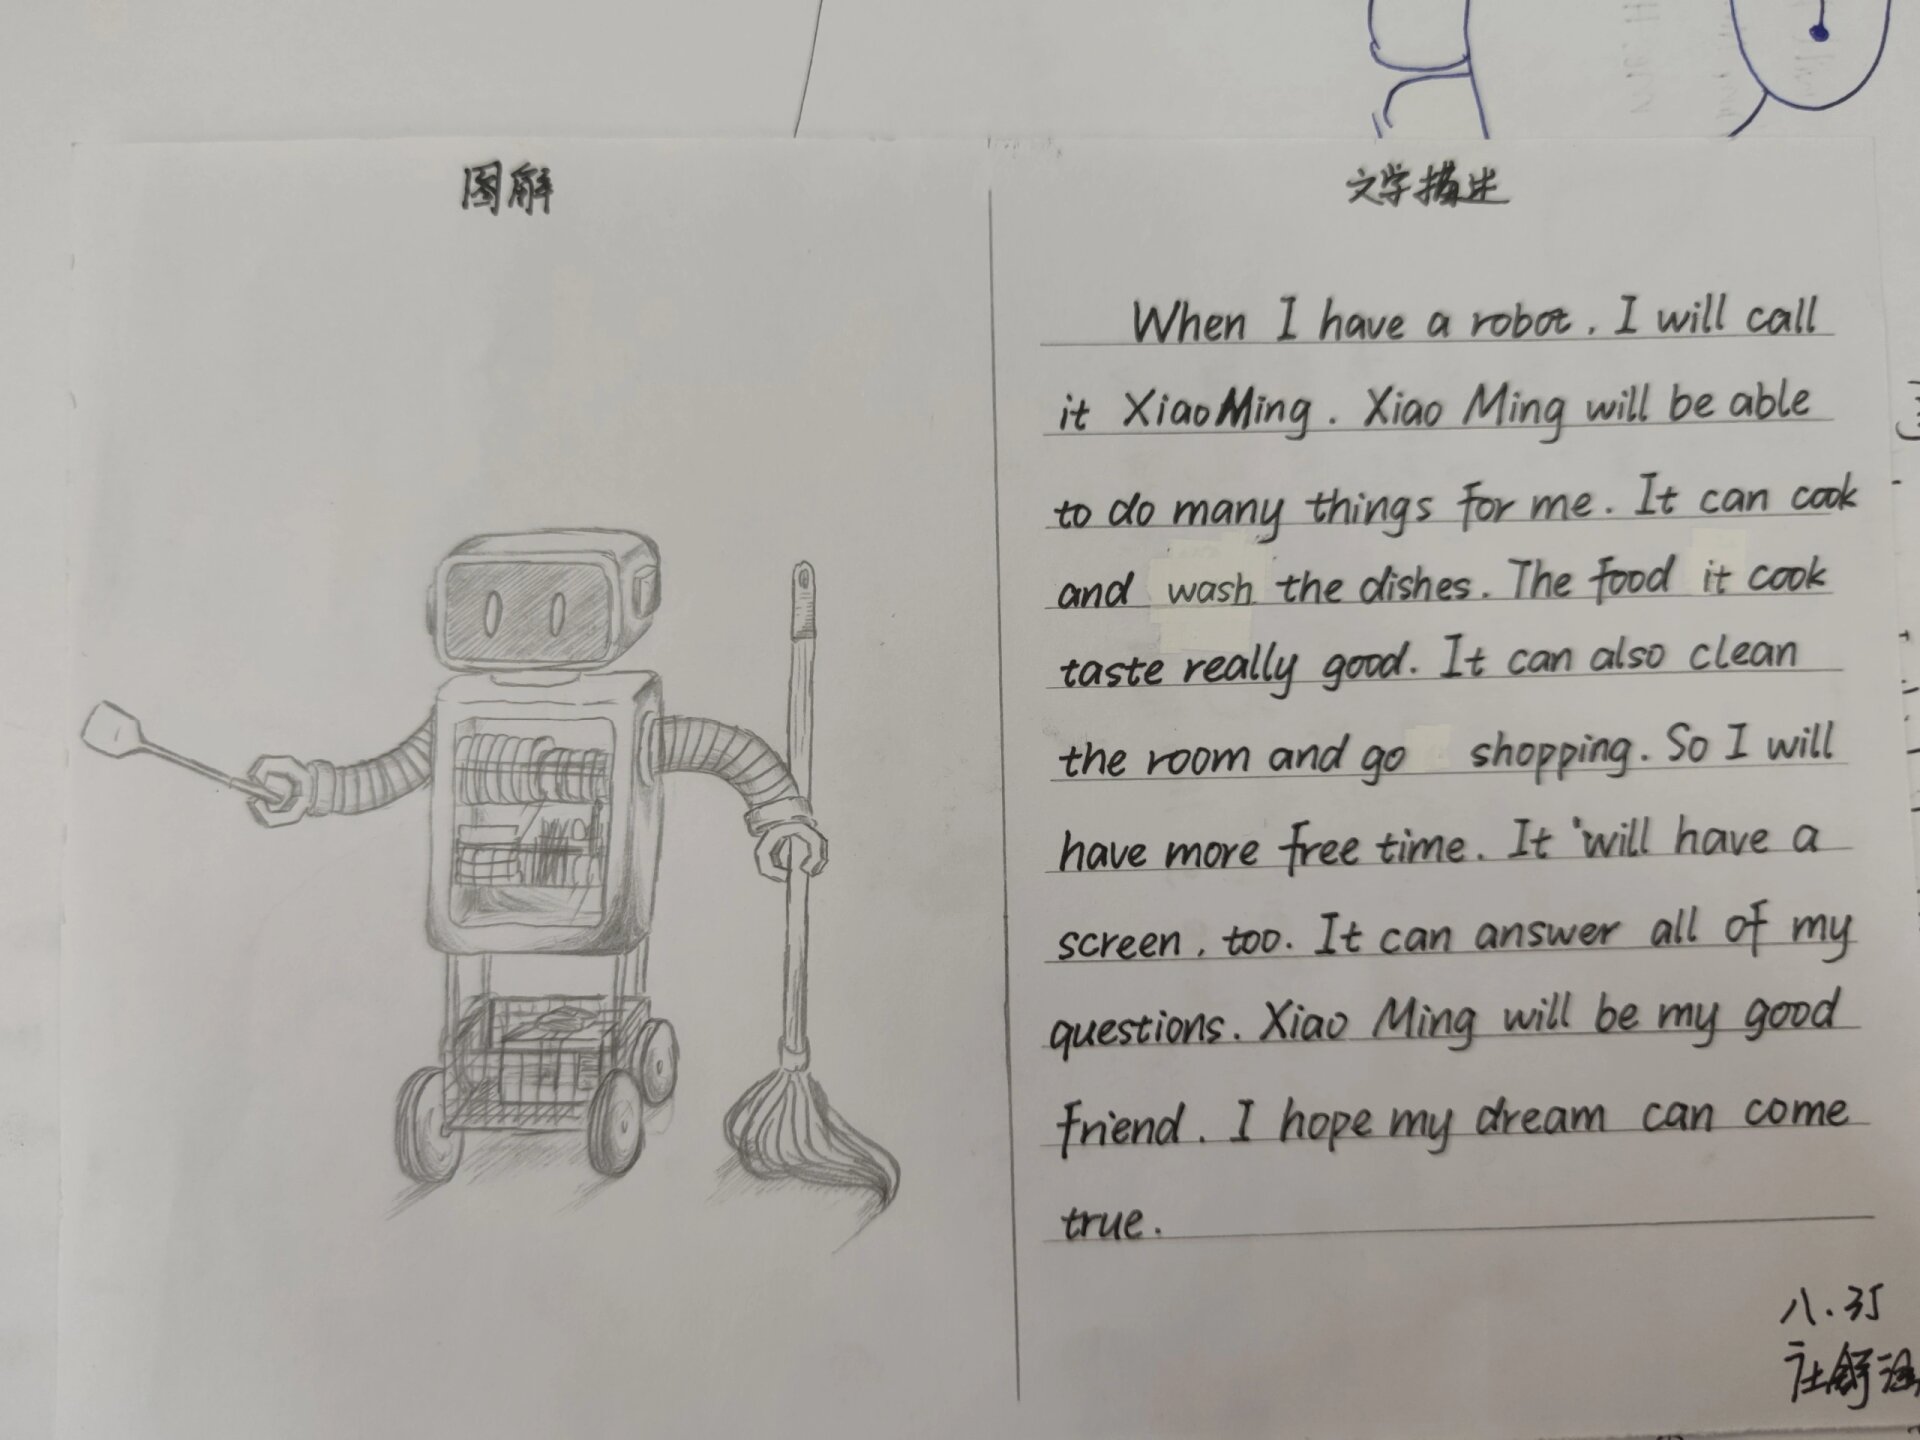 图解
文学描述
When I have a robot. I will call
it XiaoMing. Xiao Ming will be able
to do many things for me. It can cook
and wash the dishes. The food it cook
taste really good. It can also clean
the room and go shopping. So I will
have more free time. It will have a
screen, too. It can answer all of my
questions. Xiao Ming will be my good
friend. I hope my dream can come
true.